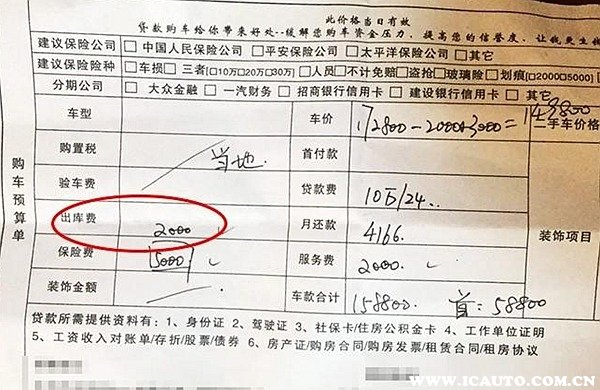 此价格当日有效
贷款购车给你带来好处--缓解您购车资金压力、提高您的信誉度、让我更生
建议保险公司 □中国人民保险公司 □平安保险公司 □太平洋保险公司 □其它
建议保险险种 □车损 □三者[□10万□20万□30万] □人员 □不计免赔 □盗抢 □玻璃险 □划痕[□2000□5000]
分期公司 □大众金融 □一汽财务 □招商银行信用卡 □建设银行信用卡 □其它
购车预算单
车型 车价 172800-20000+3000= 149800 二手车价格
购置税 当地 首付款
验车费 贷款费 10万/24
出库费 2000 月还款 4166
保险费 5000 服务费 2000 装饰项目
装饰金额 车款合计 158800 首:58800
贷款所需提供资料有:1、身份证 2、驾驶证 3、社保卡/住房公积金卡 4、工作单位证明
5、工资收入对账单/存折/股票/债券 6、房产证/购房合同/购房发票/租赁合同/租房协议
WWW.ICAUTO.COM.CN